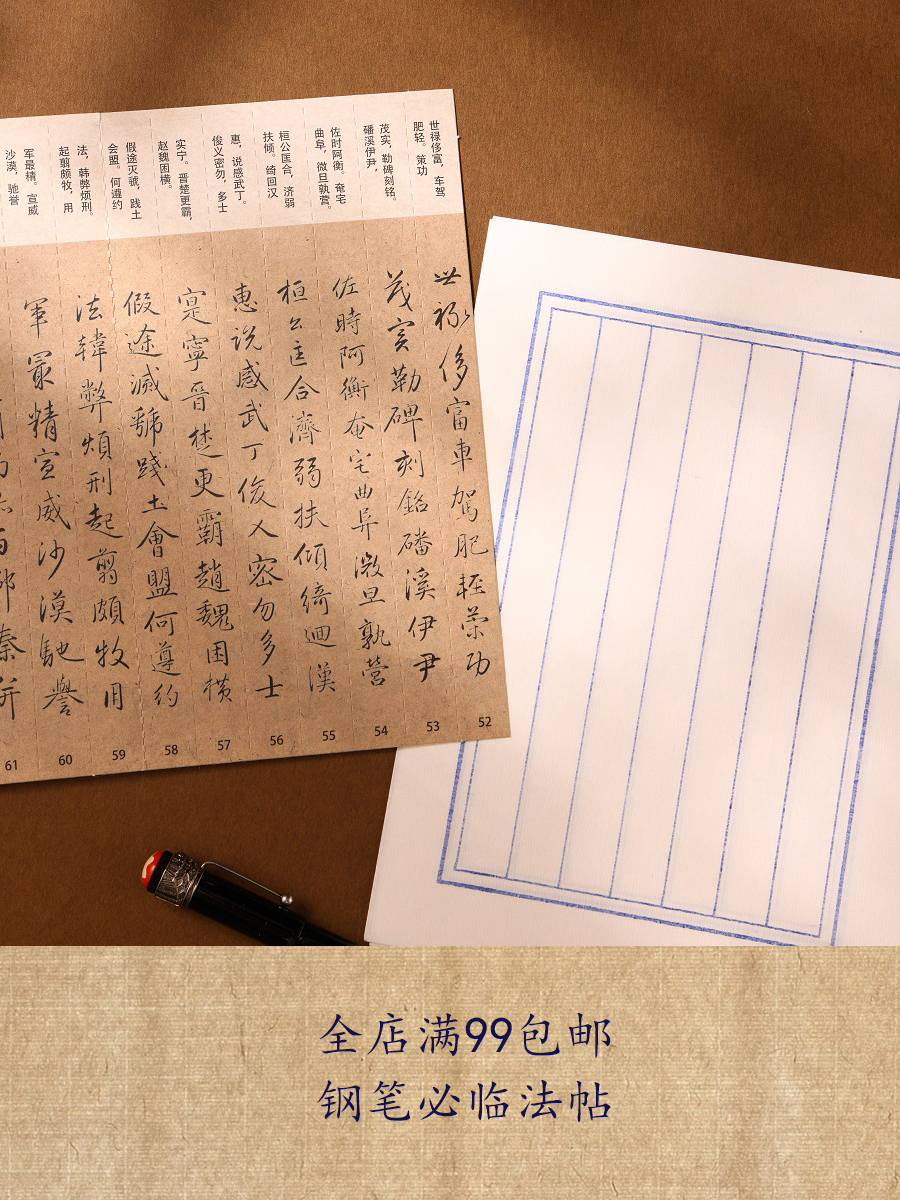 世禄侈富，车驾
肥轻。策功
茂实，勒碑刻铭。
磻溪伊尹，
佐时阿衡。奄宅
曲阜，微旦孰营。
桓公匡合，济弱
扶倾。绮回汉
惠，说感武丁。
俊义密勿，多士
实宁。晋楚更霸，
赵魏困横。
假途灭虢，践土
会盟。何遵约
法，韩弊烦刑。
起翦颇牧，用
军最精。宣威
沙漠，驰誉
世禄侈富車駕肥輕策功
茂實勒碑刻銘磻溪伊尹
佐時阿衡奄宅曲阜微旦孰營
桓公匡合濟弱扶傾綺迴漢
惠说感武丁俊乂密勿多士
寔寧晉楚更霸趙魏困橫
假途滅虢踐土會盟何遵約
法韓弊煩刑起翦頗牧用
軍冣精宣威沙漠馳譽
秦并
52
53
54
55
56
57
58
59
60
61
全店满99包邮
钢笔必临法帖